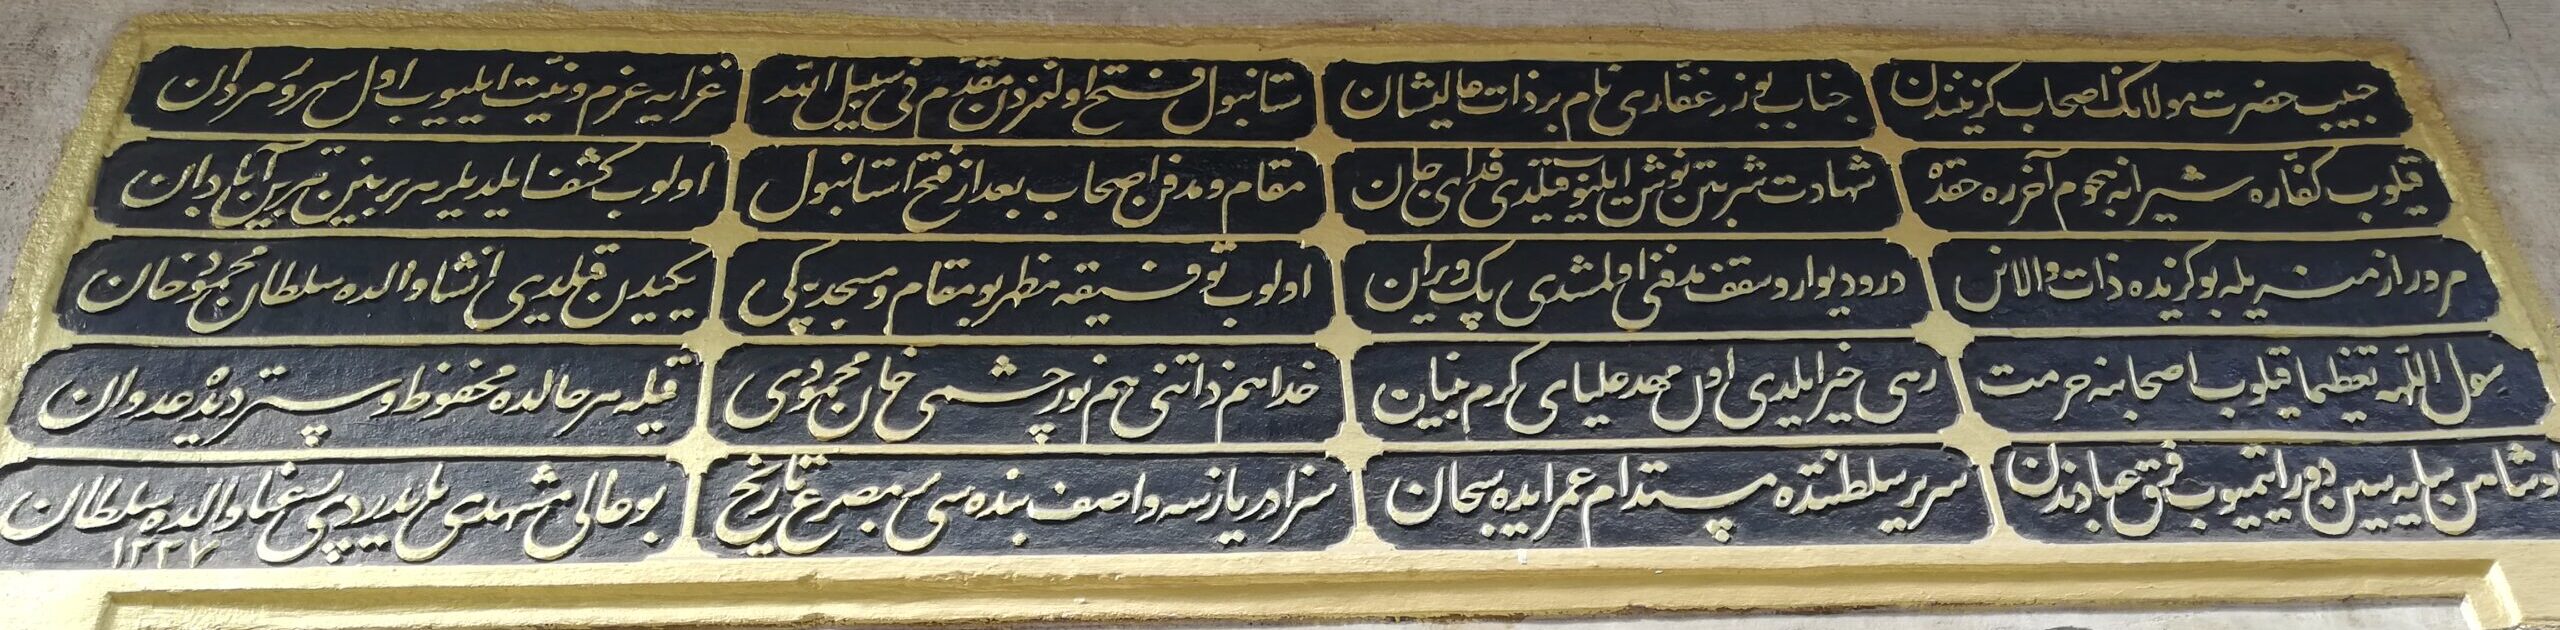 حبیب حضرت مولانك اصحاب كزینندن
جناب بوزر غفّاری نام بر ذات عالیشان
ستانبول فتح اولنمزدن مقدّم فی سبیل الله
غزایه عزم و نیّت ایلیوب اول سرور مردان
قیلوب كفّاره شیرانه هجوم آخره حقده
شهادت شربتن نوش ایلیو قیلدی فدای جان
مقام و مدفن اصحاب بعد از فتح استانبول
اولوب كشف ایلدیلر هر برینین تربه سن آبادان
مرور ازمنه یله بو كزیده ذات والانن
در و دیوار و سقف مدفنی اولمشدی پك ویران
اولوب توفیقه مظهر بو مقام و مسجد پكی
یكیدن قیلدی انشا والده سلطان محمود خان
رسول اللهه تعظیما قیلوب اصحابنه حرمت
رهی خیر ایلدی اول مهد علیای كرم بنیان
خدا هم ذاتنی هم نور چشمی خان محمودی
قیله هر حالده محفوظ و پستر دیده عدوان
او شاهن سایه سین دور ایتمیوب فرق عباددن
سریر سلطنتده مستدام عمر ایده سبحان
سزادر یازسه واصف بنده سی بر مصرع تاریخ
بو عالی مشهدی یاپدردی سعیا والده سلطان
١٢٢٧